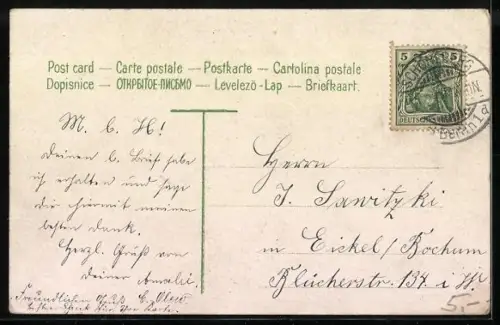 Post card — Carte postale — Postkarte — Cartolina postale
Dopisnice — ОТКРЫТОЕ-ПИСЬМО — Levelező-Lap — Briefkaart.
5 5
DEUTSCHES
M. b. H!
Deinen b. Brief habe
ich erhalten und sage
dir hiermit meinen
besten Dank.
Herzl. Gruß von
deiner Amalie.
Freundlichen Gruß
Herrn
J. Sawitzki
in Eickel/Bochum
Blücherstr. 134 i. W.
5,-